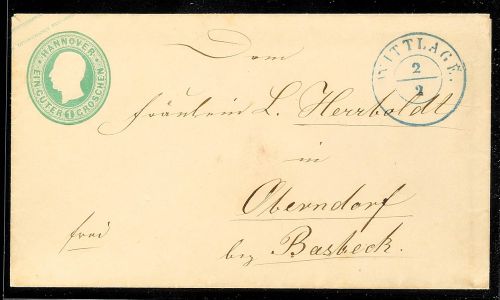 HANNOVER
EIN GUTER 1 GROSCHEN
WITTLAGE.
2
2
Dem
Fräulein L. Herrboldt
in
Oberndorf
frei
bey Basbeck.